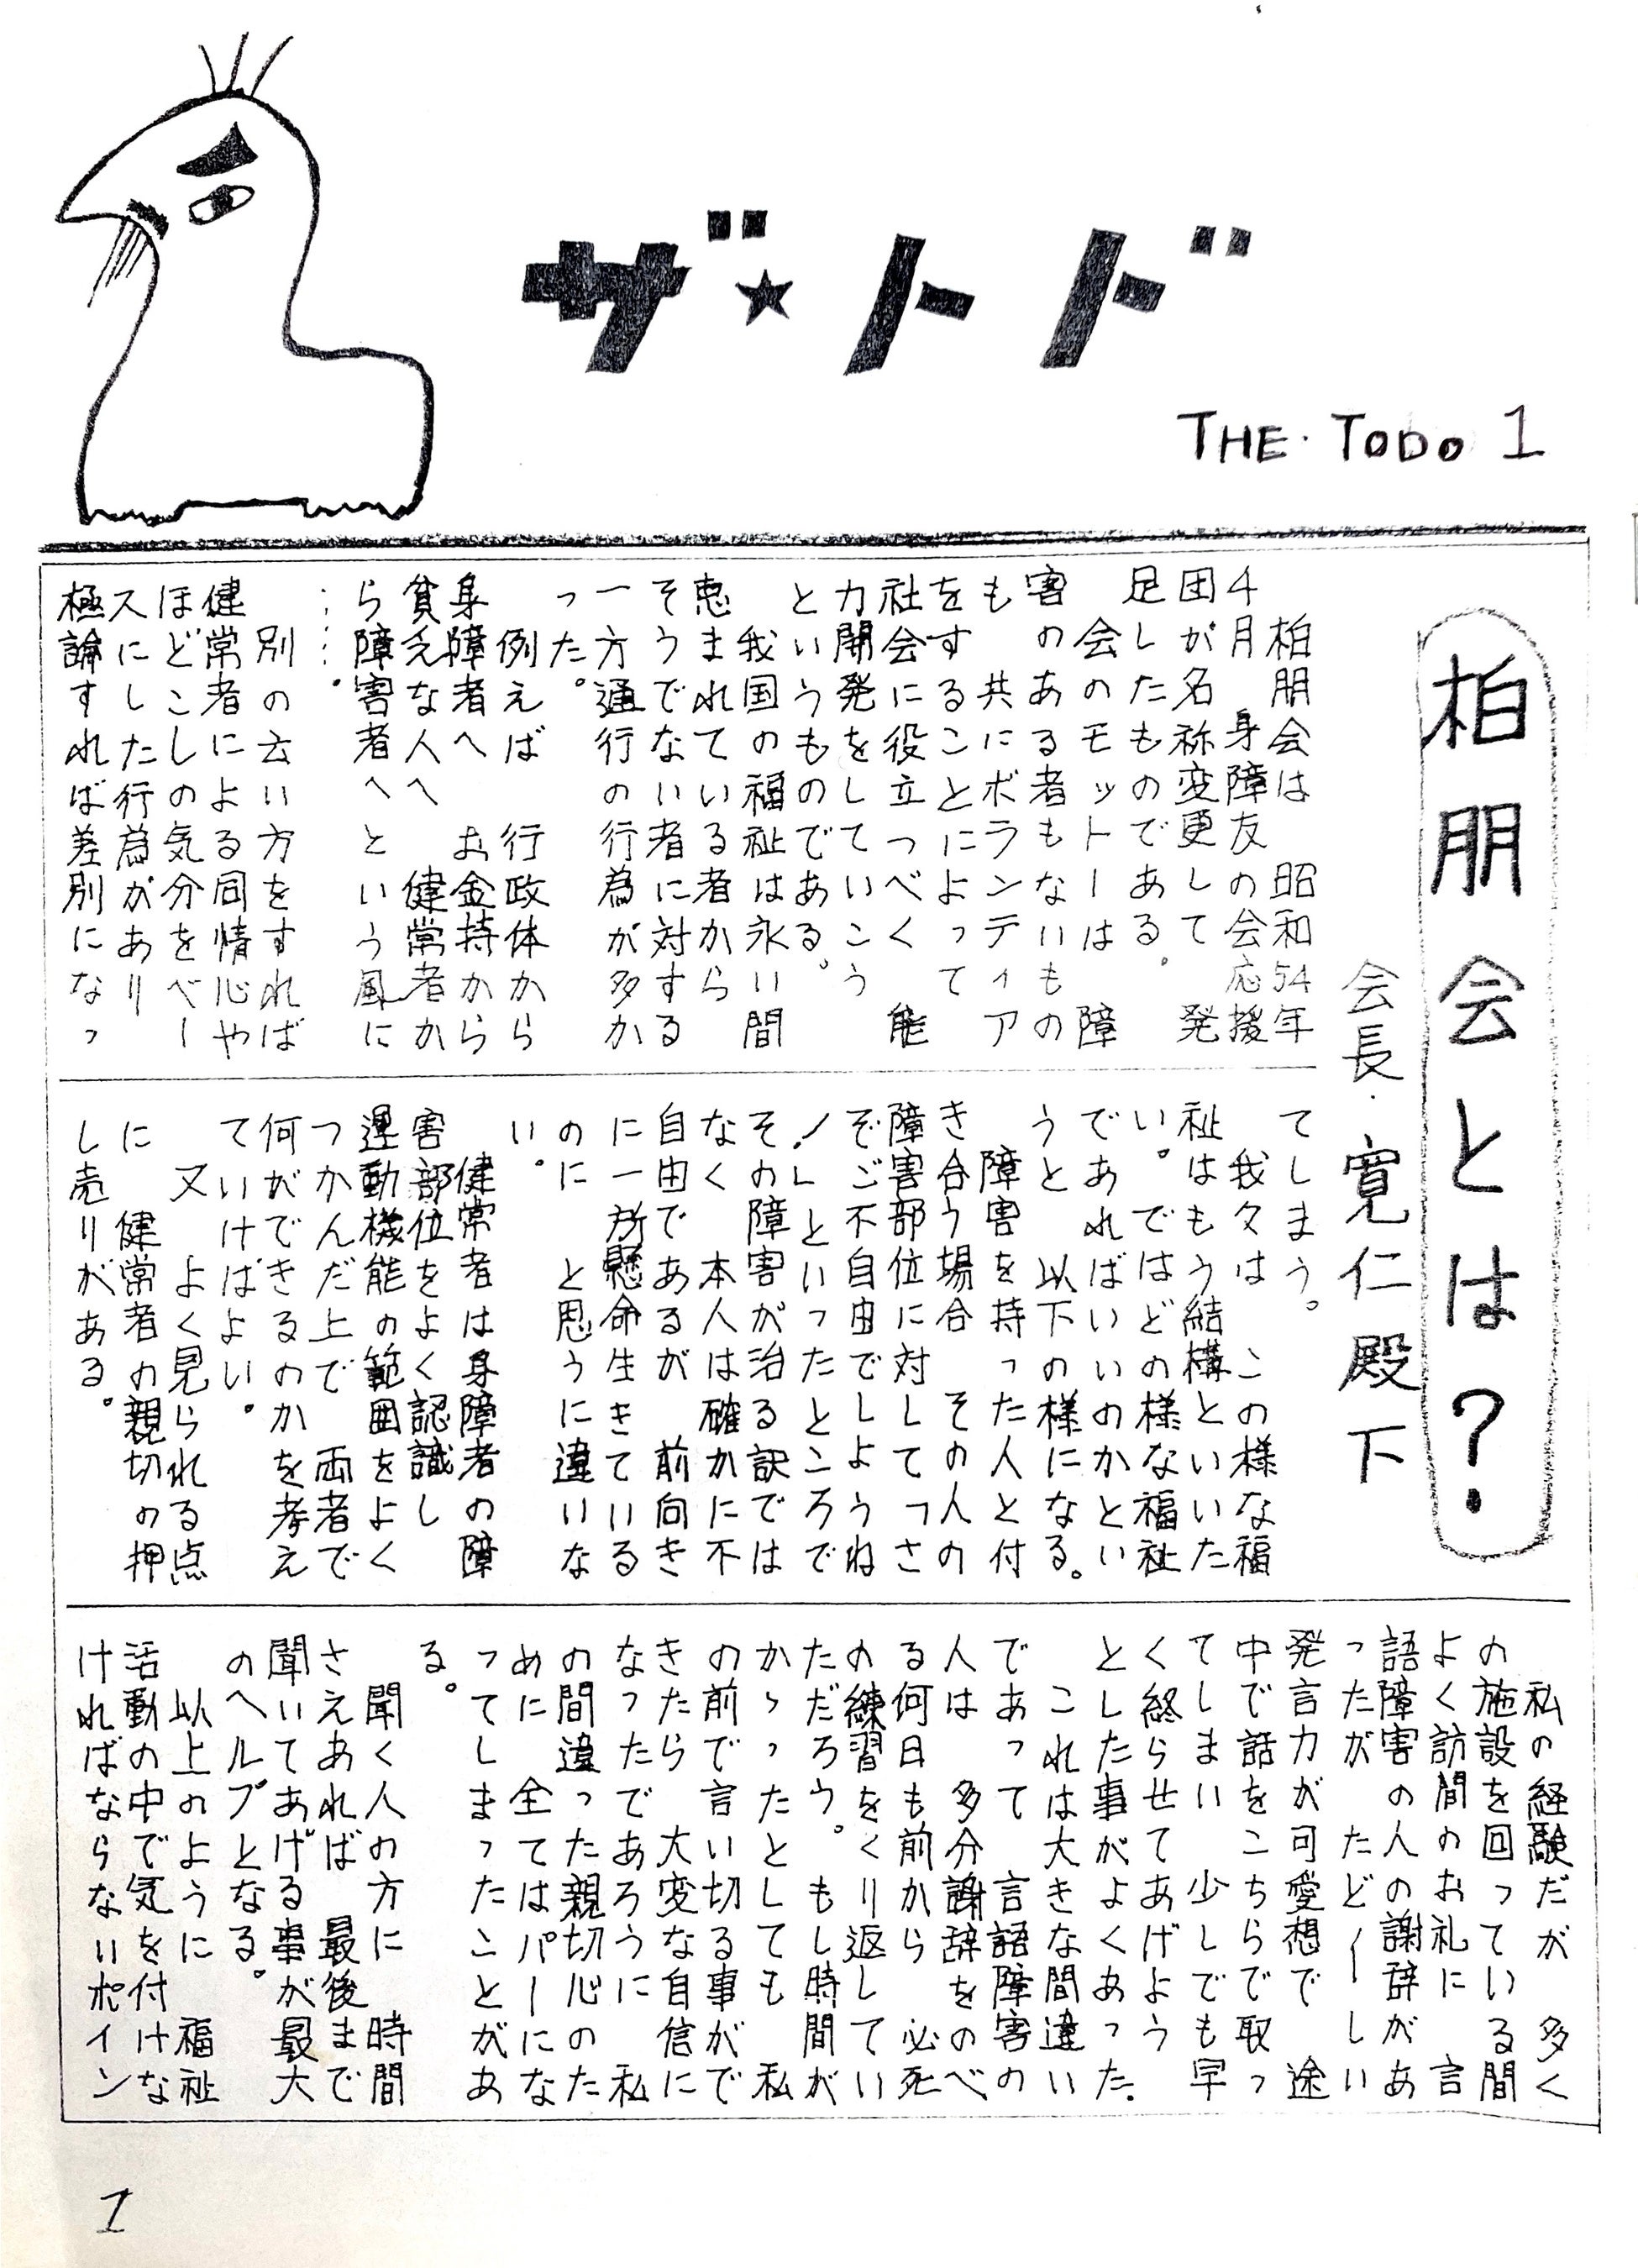 ザ★トド
THE・TODO 1
柏朋会とは?
会長・寛仁殿下
柏朋会は 昭和54年
4月 身障友の会応援
団が名称変更して 発
足したものである。
会のモットーは 障
害のある者もないもの
も 共にボランティア
をすることによって
社会に役立つべく 能
力開発をしていこう
というものである。
我国の福祉は永い間
恵まれている者から
そうでない者に対する
一方通行の行為が多か
った。
例えば 行政体から
身障者へ お金持から
貧乏な人へ 健常者か
ら障害者へという風に
……。
別の云い方をすれば
健常者による同情心や
ほどこしの気分をベー
スにした行為があり
極論すれば差別になっ
てしまう。
我々は この様な福
祉はもう結構といいた
い。ではどの様な福祉
であればいいのかとい
うと 以下の様になる。
障害を持った人と付
き合う場合 その人の
障害部位に対して「さ
ぞご不自由でしようね
！」といったところで
その障害が治る訳では
なく 本人は確かに不
自由であるが 前向き
に一所懸命生きている
のに と思うに違いな
い。
健常者は身障者の障
害部位をよく認識し
運動機能の範囲をよく
つかんだ上で 両者で
何ができるのかを考え
ていけばよい。
又 よく見られる点
に 健常者の親切の押
し売りがある。
私の経験だが 多く
の施設を回っている間
よく訪間のお礼に 言
語障害の人の謝辞があ
ったが たどーしい
発言力が可愛想で 途
中で話をこちらで取っ
てしまい 少しでも早
く終らせてあげよう
とした事がよくあった。
これは大きな間違い
であって 言語障害の
人は 多分謝辞をのべ
る何日も前から 必死
の練習をくり返してい
ただろう。もし時間が
かゝったとしても 私
の前で言い切る事がで
きたら 大変な自信に
なったであろうに 私
の間違った親切心のた
めに 全てはパーにな
ってしまったことがあ
る。
聞く人の方に 時間
さえあれば 最後まで
聞いてあげる事が最大
のヘルプとなる。
以上のように 福祉
活動の中で気を付けな
ければならないポイン
1